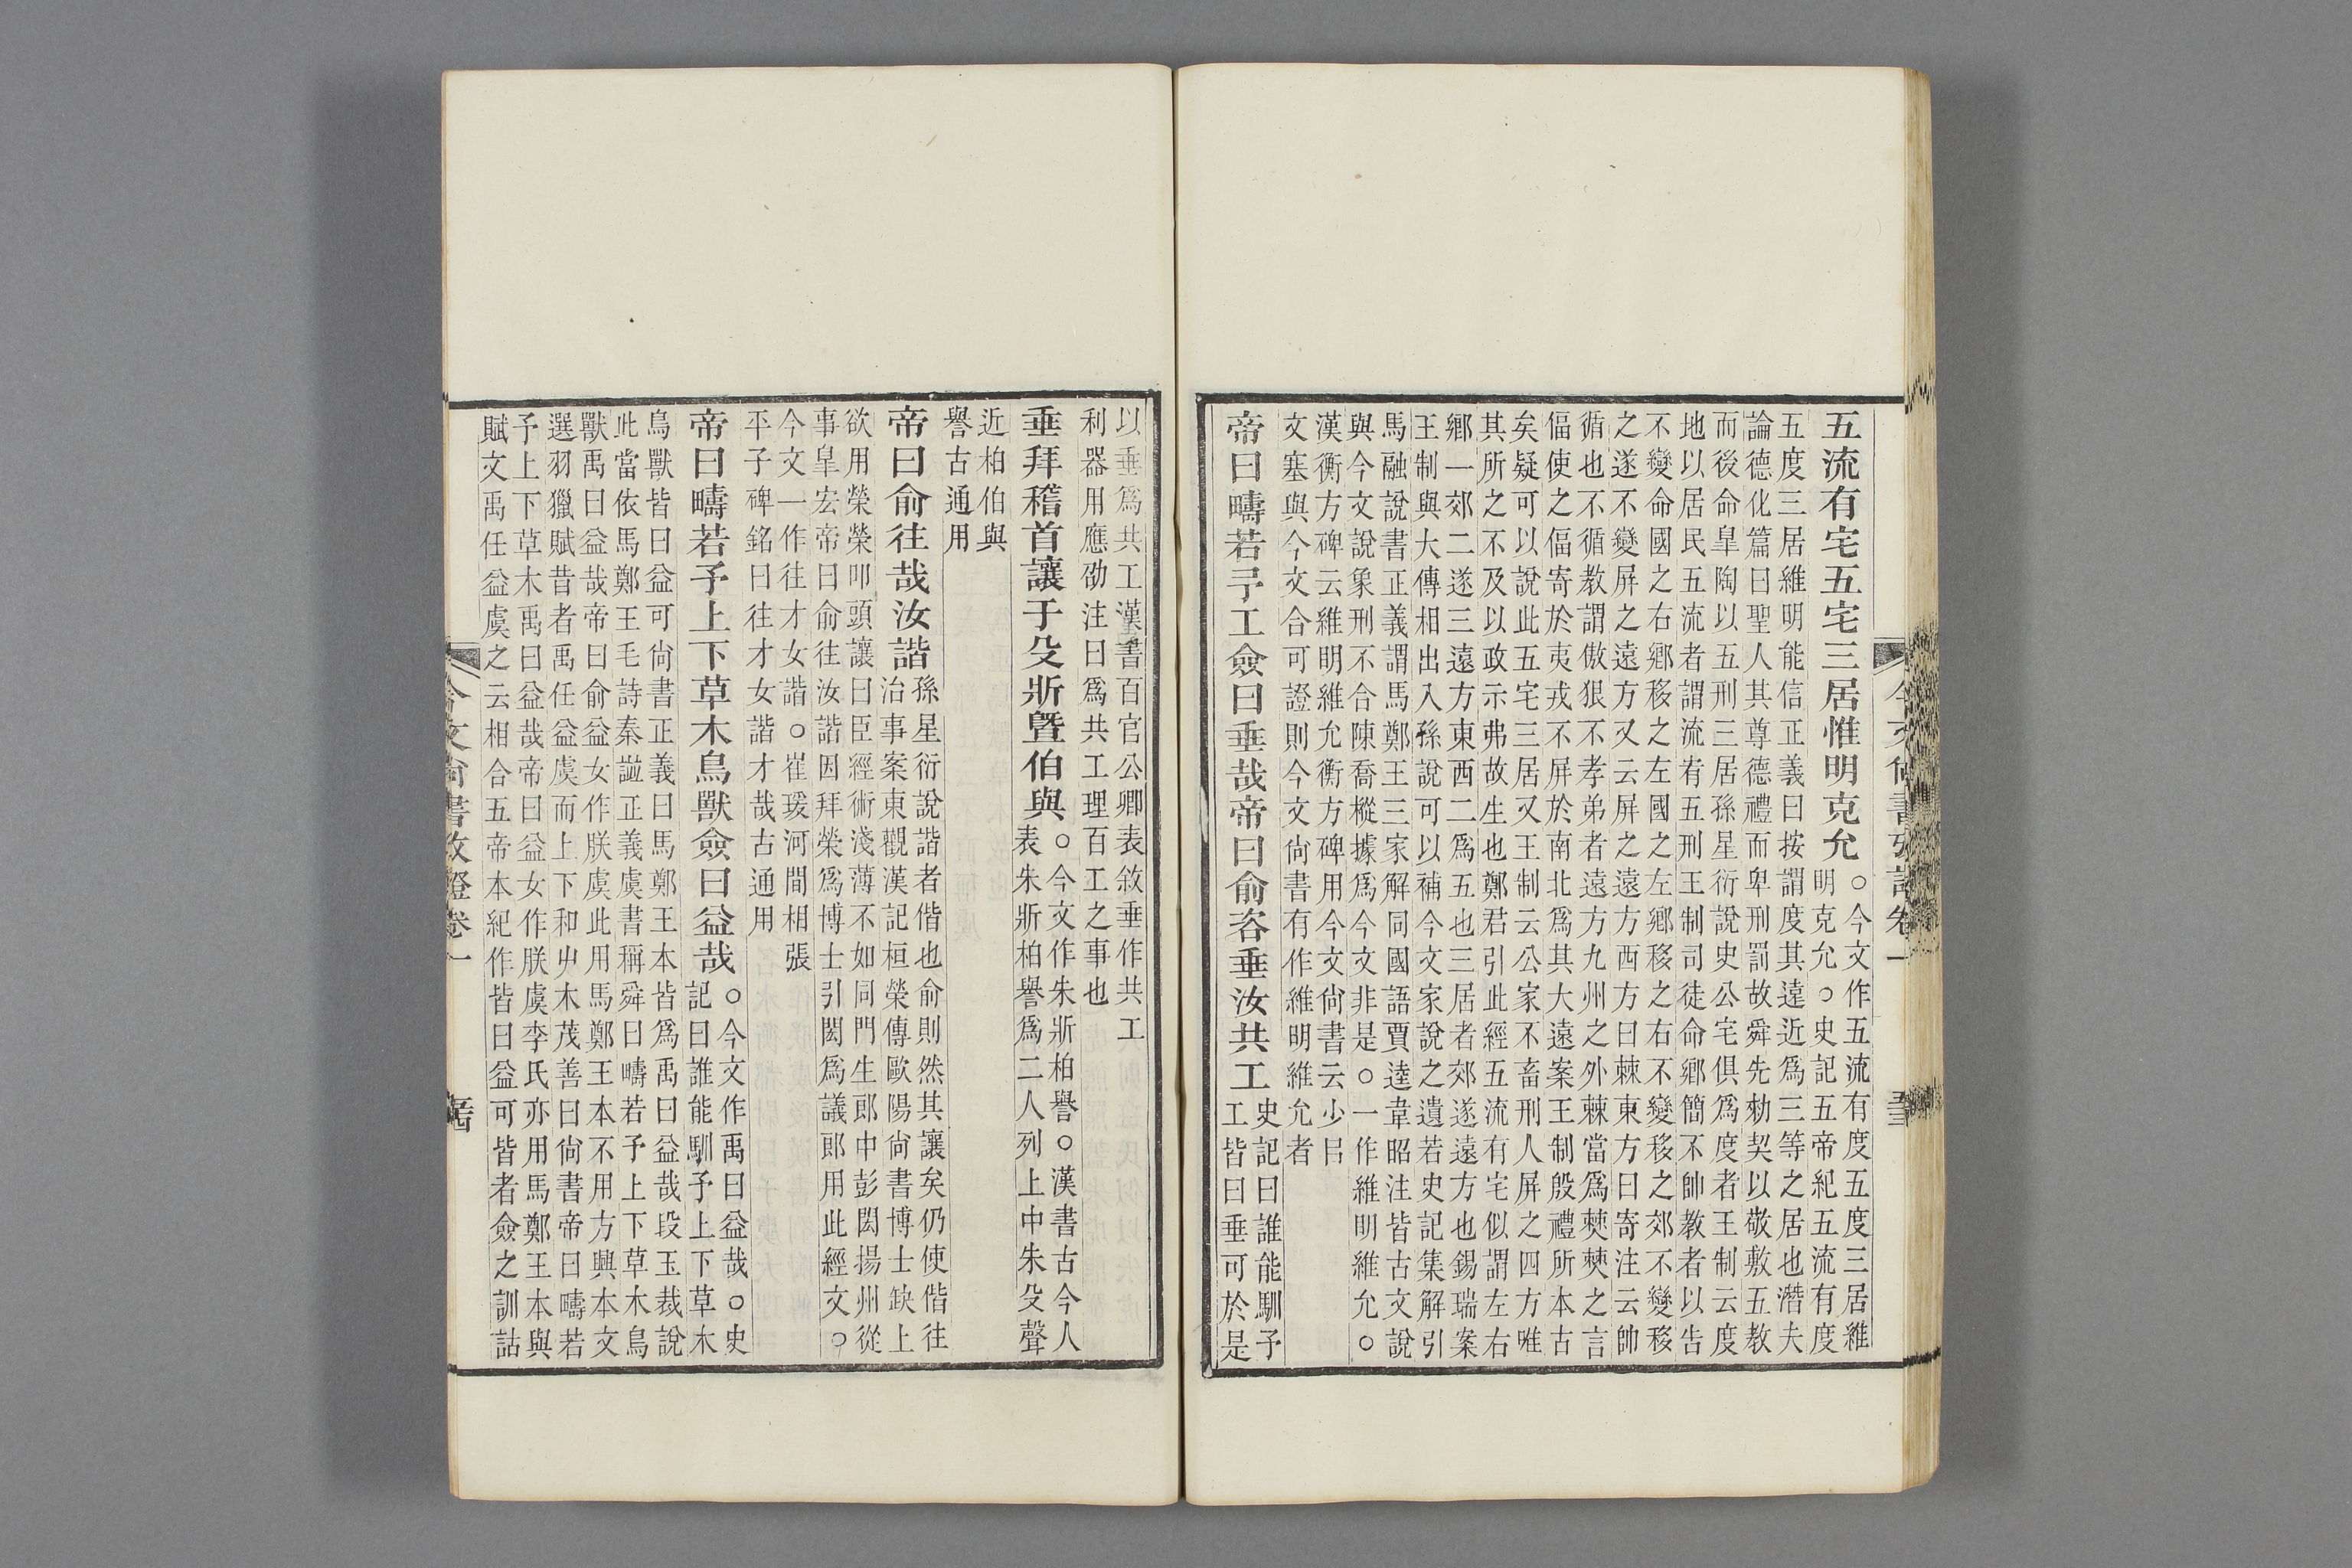 五流有宅五宅三居惟明克允○今文作五流有度五度三居維
明克允○史記五帝紀五流有度
五度三居維明能信正義曰按謂度其遠近爲三等之居也潛夫
論德化篇曰聖人其尊德禮而卑刑罰故舜先勑契以敬敷五教
而後命皐陶以五刑三居孫星衍說史公宅俱爲度者王制云度
地以居民五流者謂流宥五刑王制司徒命鄉簡不帥教者以告
不變命國之右鄉移之左國之左鄉移之右不變移之郊不變移
之遂不變屏之遠方又云屏之遠方西方曰棘東方曰寄注云帥
循也不循教謂傲狠不孝弟者遠方九州之外棘當爲僰僰之言
偪使之偪寄於夷戎不屏於南北爲其大遠案王制殷禮所本古
矣疑可以說此五宅三居又王制云公家不畜刑人屏之四方唯
其所之不及以政示弗故生也鄭君引此經五流有宅似謂左右
鄉一郊二遂三遠方東西二爲五也三居者郊遂遠方也錫瑞案
王制與大傳相出入孫說可以補今文家說之遺若史記集解引
馬融說書正義謂馬鄭王三家解同國語賈逵韋昭注皆古文說
與今文說象刑不合陳喬樅據爲今文非是○一作維明維允○
漢衡方碑云維明維允衡方碑用今文尙書云少㠯
文塞與今文合可證則今文尙書有作維明維允者
帝曰疇若予工僉曰垂哉帝曰俞咨垂汝共工史記曰誰能馴予
工皆曰垂可於是
今文尙書攷證卷一
以垂爲共工漢書百官公卿表敘垂作共工
利器用應劭注曰爲共工理百工之事也
垂拜稽首讓于殳斨曁伯與○今文作朱斨柏譽○漢書古今人
表朱斨柏譽爲二人列上中朱殳聲
近柏伯與
譽古通用
帝曰俞往哉汝諧孫星衍說諧者偕也俞則然其讓矣仍使偕往
治事案東觀漢記桓榮傳歐陽尙書博士缺上
欲用榮榮叩頭讓曰臣經術淺薄不如同門生郎中彭閎揚州從
事皐宏帝曰俞往汝諧因拜榮爲博士引閎爲議郎用此經文○
今文一作往才女諧○崔瑗河間相張
平子碑銘曰往才女諧才哉古通用
帝曰疇若予上下草木鳥獸僉曰益哉○今文作禹曰益哉○史
記曰誰能馴予上下草木
鳥獸皆曰益可尙書正義曰馬鄭王本皆爲禹曰益哉段玉裁說
此當依馬鄭王毛詩秦譜正義虞書稱舜曰疇若予上下草木鳥
獸禹曰益哉帝曰俞益女作朕虞此用馬鄭王本不用方興本文
選羽獵賦昔者禹任益虞而上下和屮木茂善曰尙書帝曰疇若
予上下草木禹曰益哉帝曰益女作朕虞李氏亦用馬鄭王本與
賦文禹任益虞之云相合五帝本紀作皆曰益可皆者僉之訓詁
今文尙書攷證卷一